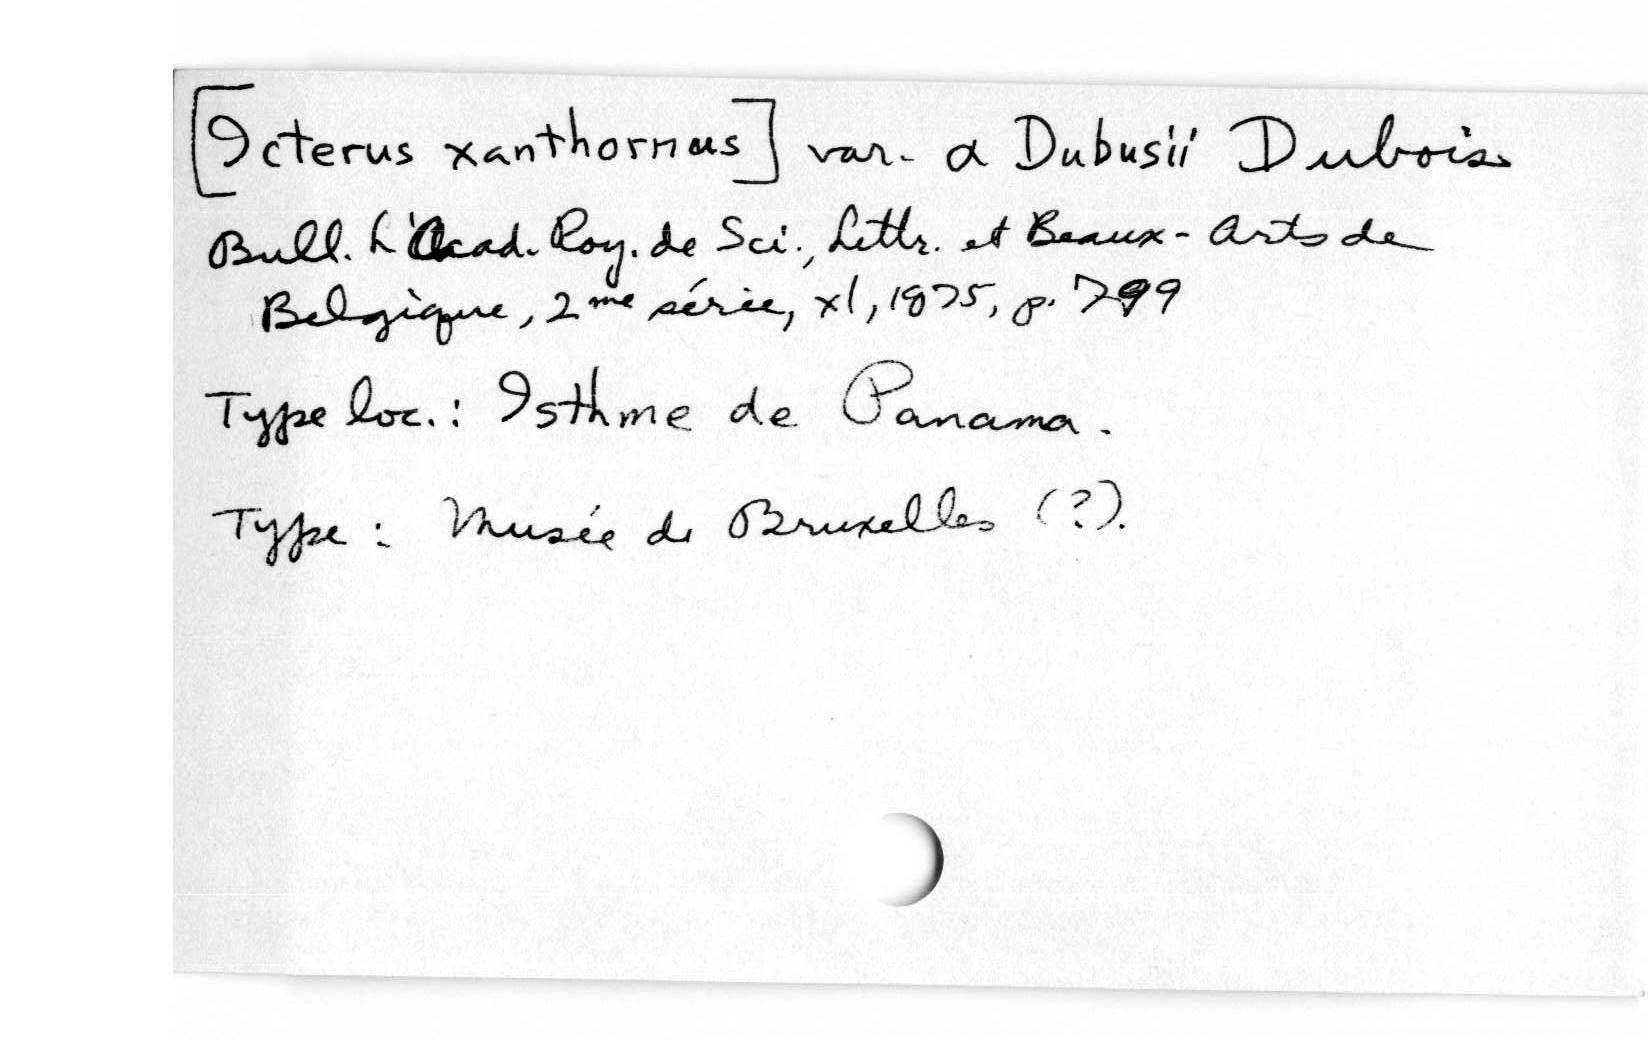 [Icterus xanthornus] var. α Dubusii Dubois
Bull. L'Acad. Roy. de Sci., Lettr. et Beaux-Arts de
Belgique, 2me série, xl, 1875, p. 799
Type loc.: Isthme de Panama.
Type: Musée de Bruxelles (?).